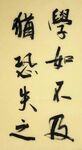 學如不及
猶恐失之